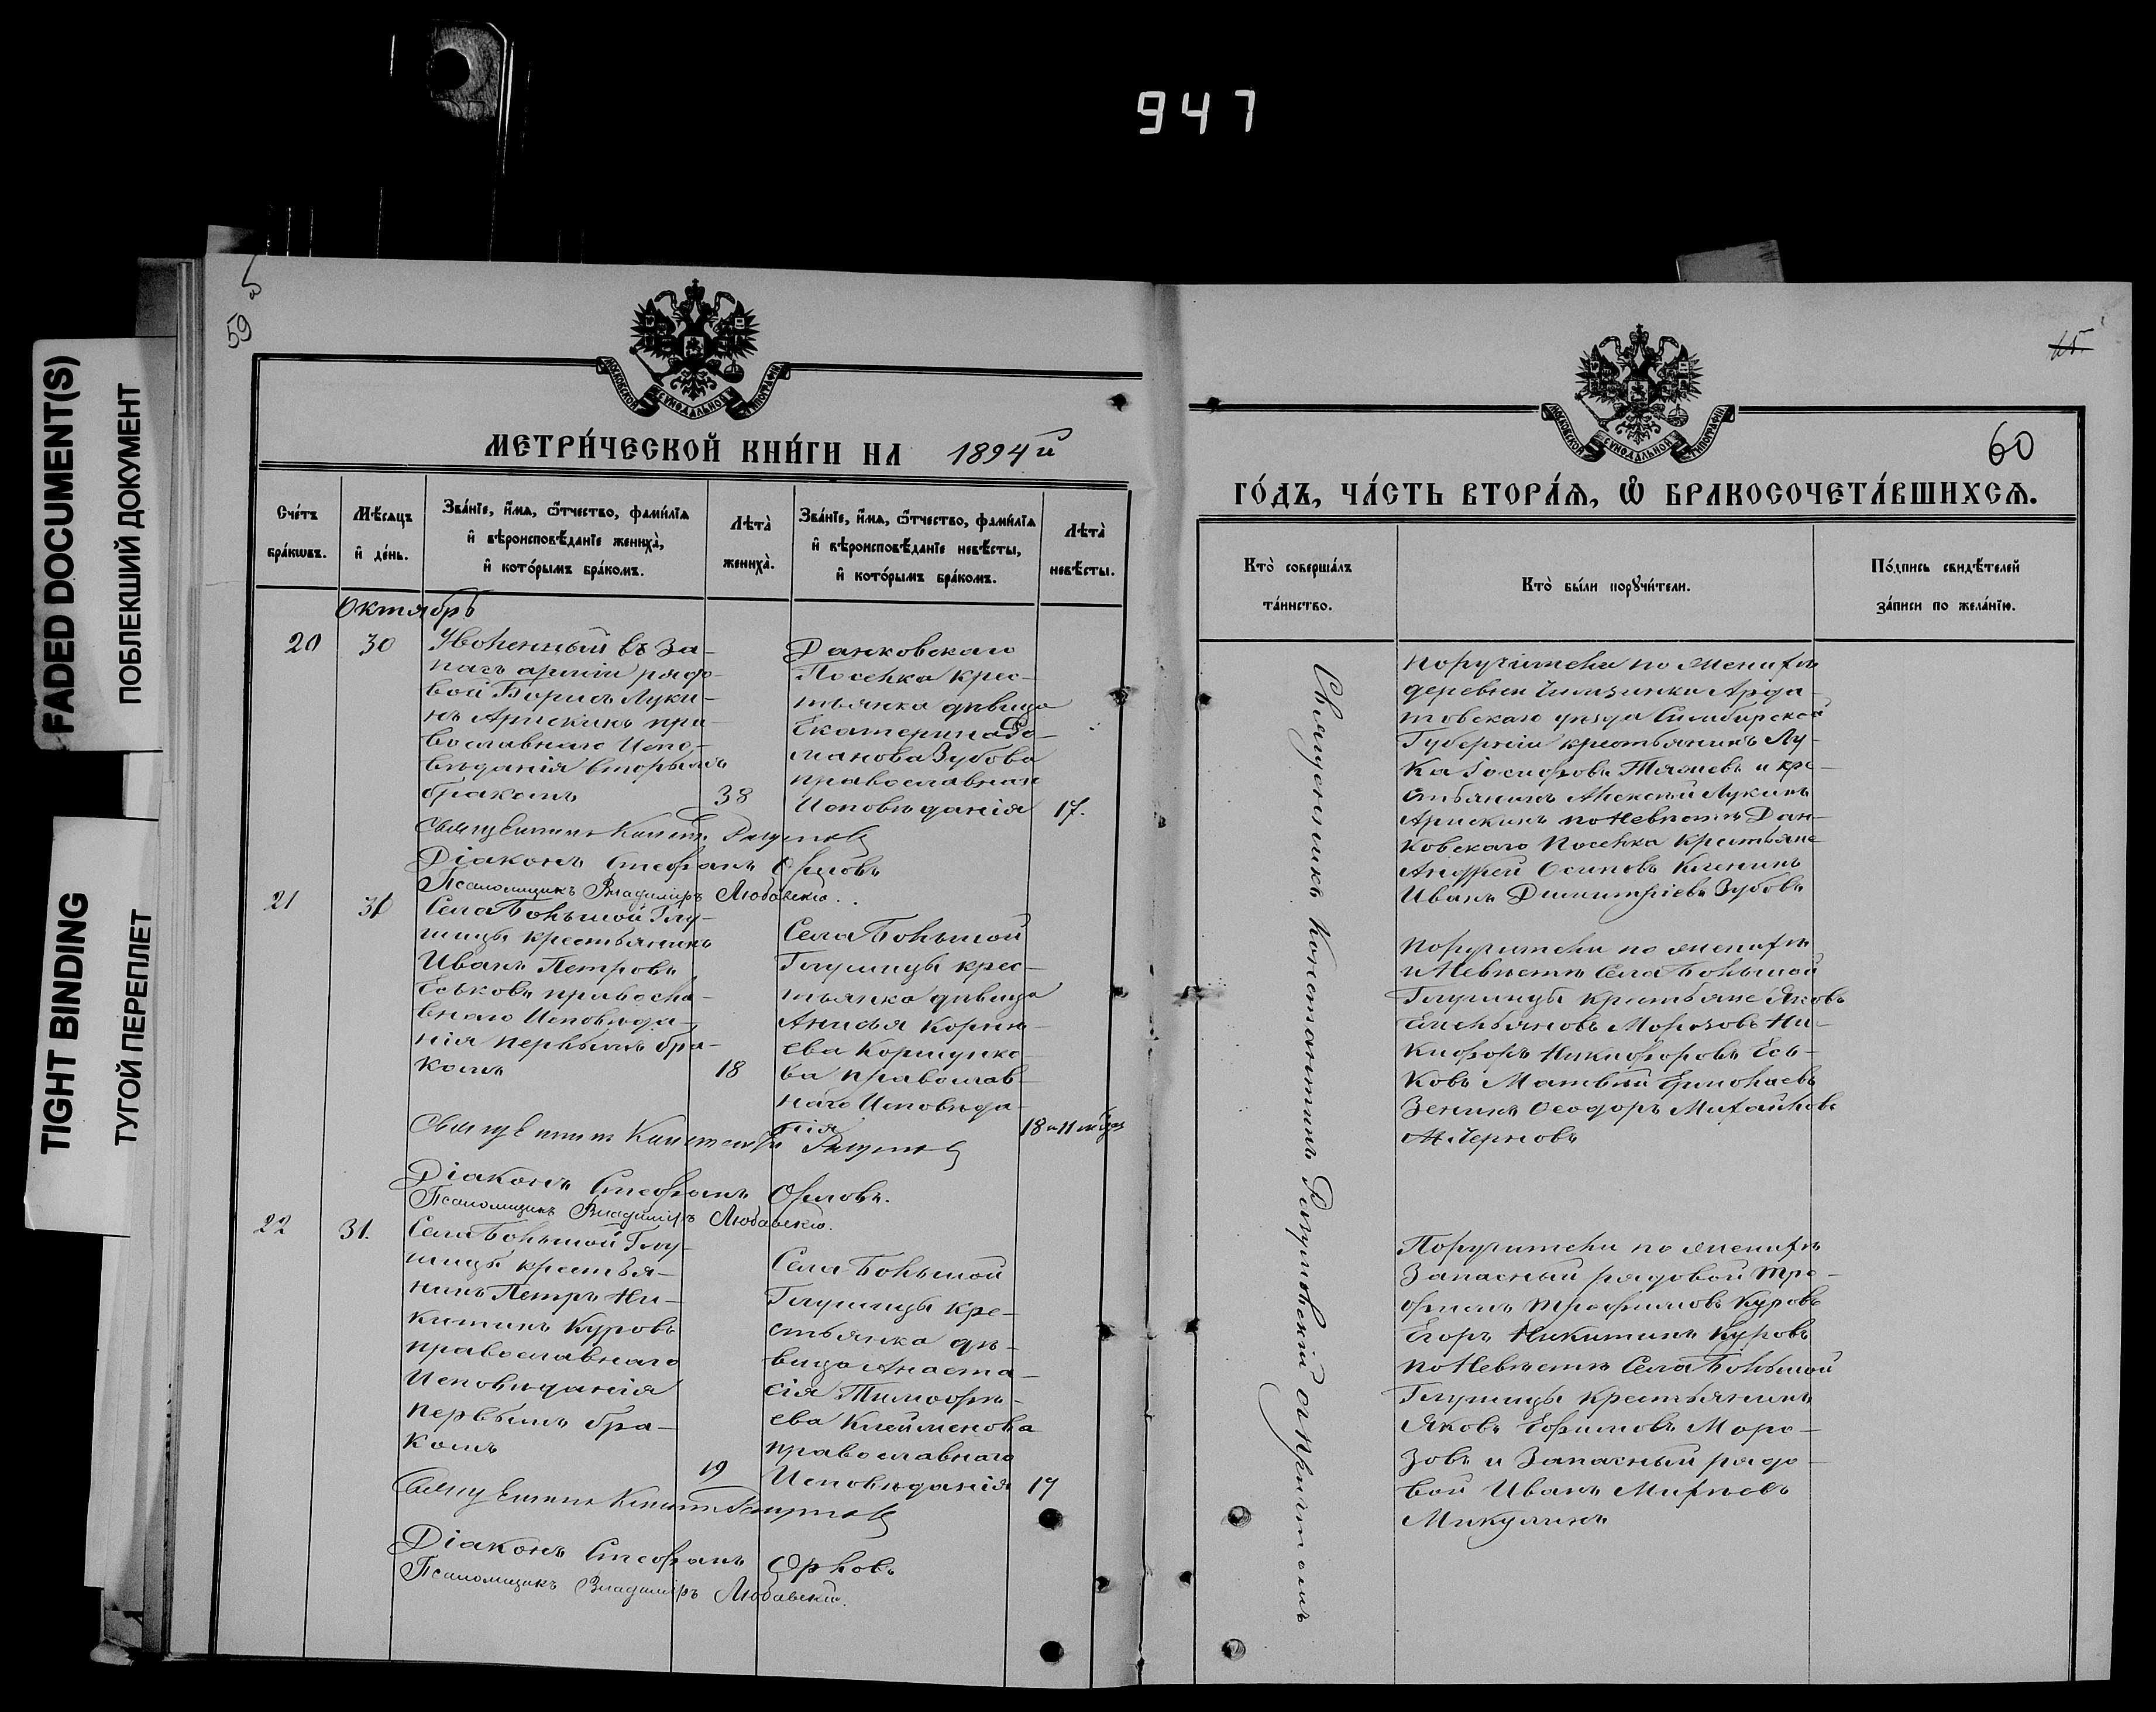 947
FADED DOCUMENT(S)
ПОБЛЕКШИЙ ДОКУМЕНТ
TIGHT BINDING
ТУГОЙ ПЕРЕПЛЕТ
59
МОСКОВСКОЙ СУНОДАЛЬНОЙ ТИПОГРАФІИ
МЕТРИ́ЧЕСКОЙ КНИ́ГИ НА 1894й
Сче́тъ бра́кωвъ.
Мѣ́сяцъ и҆ де́нь.
Зва́нїе, и҆́мѧ, ѻ҆́тчество, фами́лїѧ и҆ вѣроисповѣ́данїе жениха̀, и҆ кото́рымъ бра́комъ.
Лѣта̀ жениха̀.
Зва́нїе, и҆́мѧ, ѻ҆́тчество, фами́лїѧ и҆ вѣроисповѣ́данїе невѣ́сты, и҆ кото́рымъ бра́комъ.
Лѣта̀ невѣ́сты.
Октябрь
20
30
Уволенный въ за-
пасъ арміи рядо-
вой Борисъ Луки-
нъ Арискинъ пра-
вославнаго Испо-
вѣданія вторымъ
бракомъ
38
Данковскаго
Поселка крес-
тьянка дѣвица
Екатерина Ро-
манова Зубова
православнаго
Исповѣданія
17.
Діаконъ Стефанъ Орловъ
Псаломщикъ Владиміръ Любавскій.
21
31
Села Большой Глу-
шицы крестьянинъ
Иванъ Петровъ
Еськовъ правосла-
внаго Исповѣда-
нія первымъ бра-
комъ
18
Села Большой
Глушицы крес-
тьянка дѣвица
Анисья Корни-
ева
ва православ-
наго Исповѣда-
нія
Діаконъ Стефанъ Орловъ.
Псаломщикъ Владиміръ Любавскій.
22
31.
Села Большой Глу-
шицы крестья-
нинъ Петръ Ни-
китинъ Куровъ
православнаго
Исповѣданія
первымъ бра-
комъ
19
Села Большой
Глушицы кре-
стьянка дѣ-
вица Анаста-
сія Тимофѣ-
ева Клейменова
православнаго
Исповѣданія
17
Діаконъ Стефанъ Орловъ
Псаломщикъ Владиміръ Любавскій.
МОСКОВСКОЙ СУНОДАЛЬНОЙ ТИПОГРАФІИ
60
ГО́ДЪ, ЧА́СТЬ ВТОРА́Ѧ, Ѽ БРАКОСОЧЕТА́ВШИХСѦ.
Кто̀ соверша́лъ та́инство.
Кто̀ бы́ли порꙋчи́тели.
По́дпись свидѣ́телей за́писи по жела́нїю.
Священникъ Константинъ Разумовскій съ причтомъ
Поручители по женихѣ
деревни Чимзинки Арда-
товскаго уѣзда Симбирской
Губерніи крестьянинъ Лу-
ка Іосифовъ и кре-
стьянинъ Алексѣй Лукинъ
Арискинъ по Невѣстѣ Дан-
ковскаго Поселка Крестьяне
Андрей Осиповъ
Иванъ Димитріевъ Зубовъ
Поручители по женихѣ
и Невѣстѣ Села Большой
Глушицы крестьяне Яковъ
Емельяновъ Морозовъ Ни-
кифоръ Никифоровъ Есь-
ковъ Матвѣй Ермолаевъ
Зенинъ Ѳеодоръ Михайловъ
Черновъ
Поручители по женихѣ
Запасный рядовой Тро-
фимъ Трофимовъ Куровъ
Егоръ Никитинъ Куровъ
по Невѣстѣ Села Большой
Глушицы Крестьянинъ
Яковъ Ефимовъ Моро-
зовъ и Запасный рядо-
вой Иванъ Михѣевъ
Микулинъ